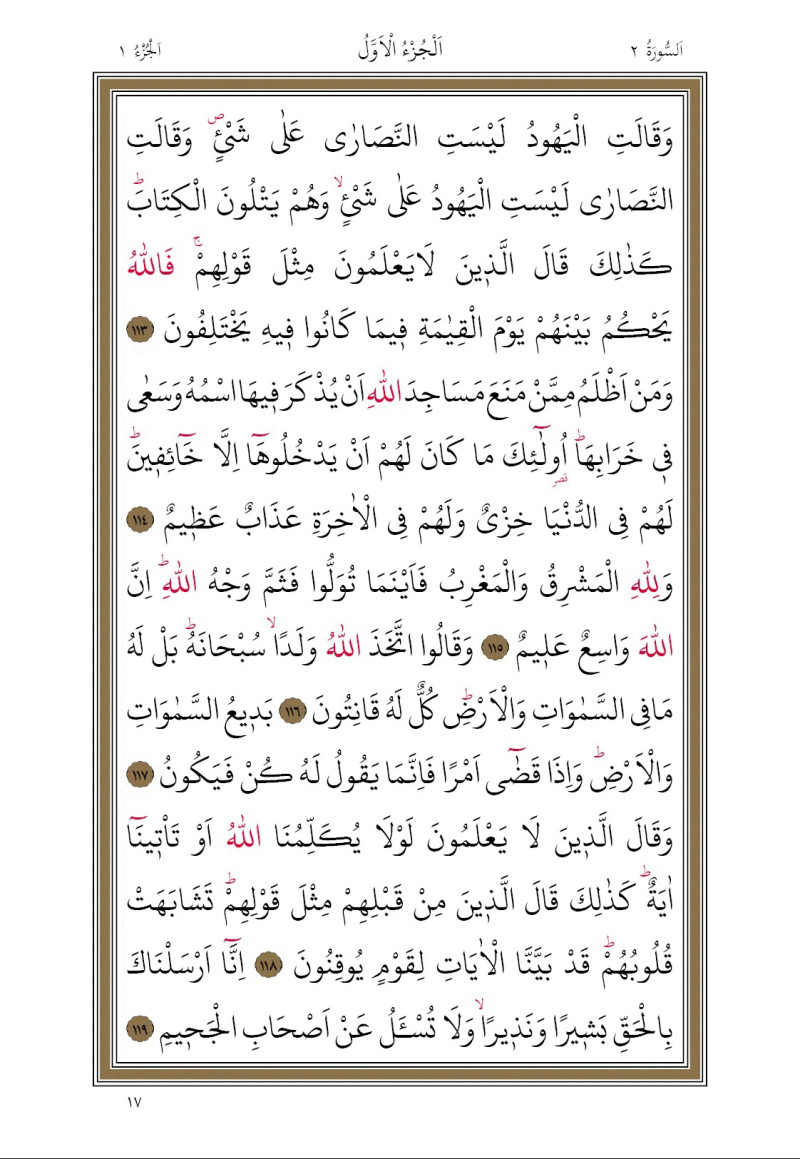 اَلسُّورَةُ ٢ اَلْجُزْءُ الْاَوَّلُ اَلْجُزْءُ ١
وَقَالَتِ الْيَهُودُ لَيْسَتِ النَّصَارٰى عَلٰى شَيْءٍۖ وَقَالَتِ
النَّصَارٰى لَيْسَتِ الْيَهُودُ عَلٰى شَيْءٍۙ وَهُمْ يَتْلُونَ الْكِتَابَۜ
كَذٰلِكَ قَالَ الَّذ۪ينَ لَايَعْلَمُونَ مِثْلَ قَوْلِهِمْۚ فَاللّٰهُ
يَحْكُمُ بَيْنَهُمْ يَوْمَ الْقِيٰمَةِ ف۪يمَا كَانُوا ف۪يهِ يَخْتَلِفُونَ ١١٣
وَمَنْ اَظْلَمُ مِمَّنْ مَنَعَ مَسَاجِدَ اللّٰهِ اَنْ يُذْكَرَ ف۪يهَا اسْمُهُ وَسَعٰى
ف۪ي خَرَابِهَاۜ اُو۬لٰٓئِكَ مَا كَانَ لَهُمْ اَنْ يَدْخُلُوهَٓا اِلَّا خَٓائِف۪ينَۜ
لَهُمْ فِي الدُّنْيَا خِزْيٌ وَلَهُمْ فِي الْاٰخِرَةِ عَذَابٌ عَظ۪يمٌ ١١٤
وَلِلّٰهِ الْمَشْرِقُ وَالْمَغْرِبُ فَاَيْنَمَا تُوَلُّوا فَثَمَّ وَجْهُ اللّٰهِۜ اِنَّ
اللّٰهَ وَاسِعٌ عَل۪يمٌ ١١٥ وَقَالُوا اتَّخَذَ اللّٰهُ وَلَدًاۙ سُبْحَانَهُۜ بَلْ لَهُ
مَافِي السَّمٰوَاتِ وَالْاَرْضِۜ كُلٌّ لَهُ قَانِتُونَ ١١٦ بَد۪يعُ السَّمٰوَاتِ
وَالْاَرْضِۜ وَاِذَا قَضٰٓى اَمْرًا فَاِنَّمَا يَقُولُ لَهُ كُنْ فَيَكُونُ ١١٧
وَقَالَ الَّذ۪ينَ لَا يَعْلَمُونَ لَوْلَا يُكَلِّمُنَا اللّٰهُ اَوْ تَأْت۪ينَٓا
اٰيَةٌۜ كَذٰلِكَ قَالَ الَّذ۪ينَ مِنْ قَبْلِهِمْ مِثْلَ قَوْلِهِمْۜ تَشَابَهَتْ
قُلُوبُهُمْۜ قَدْ بَيَّنَّا الْاٰيَاتِ لِقَوْمٍ يُوقِنُونَ ١١٨ اِنَّٓا اَرْسَلْنَاكَ
بِالْحَقِّ بَش۪يرًا وَنَذ۪يرًاۙ وَلَا تُسْـَٔلُ عَنْ اَصْحَابِ الْجَح۪يمِ ١١٩
١٧